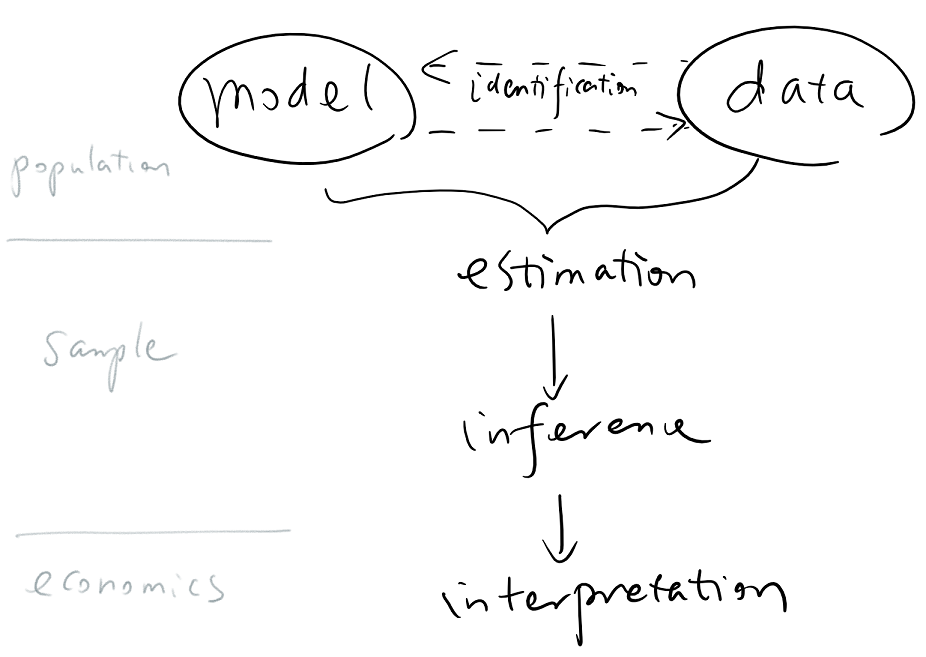 model
identification
data
population
estimation
sample
inference
economics
interpretation